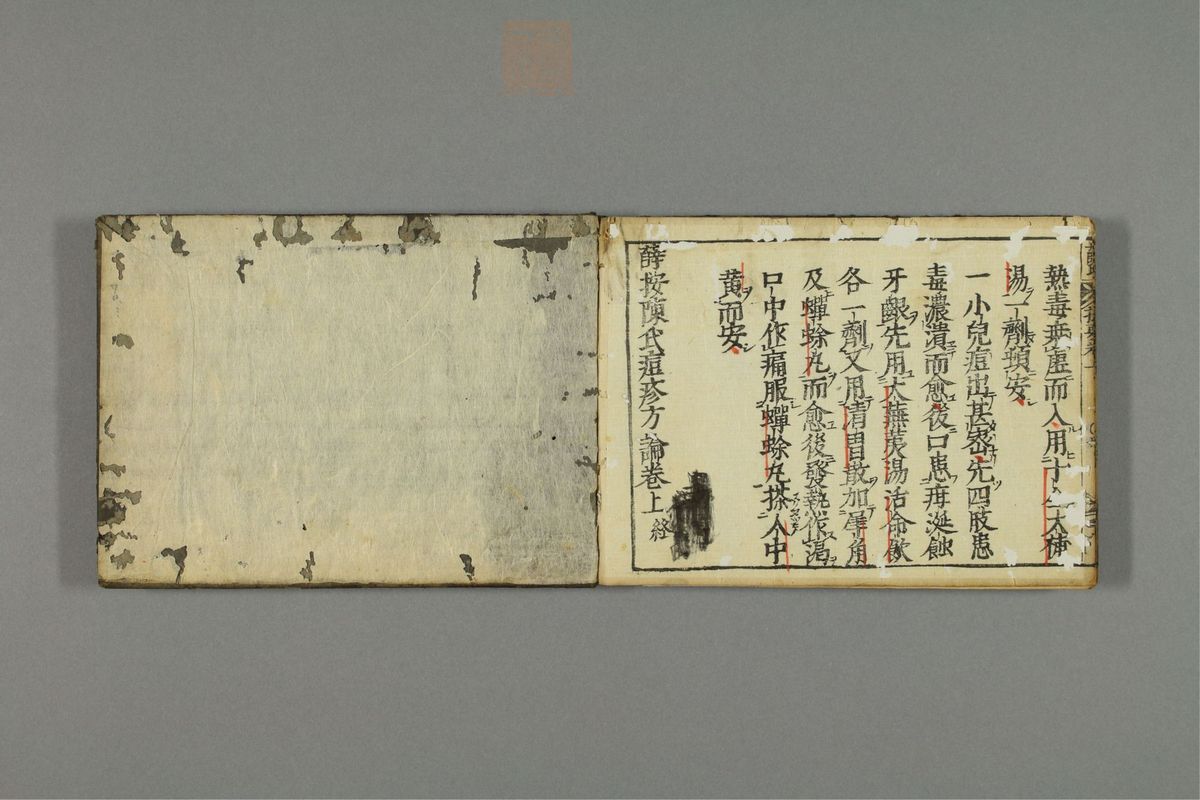 熱毒乗虚而入用十全大補
湯一劑頓安
一小兒痘出甚密先四肢患
毒膿潰而愈後口患疳涎蝕
牙齦先用大蕪荑湯活命飲
各一劑又用清胃散加犀角
及蟬蜍丸而愈後發熱作渴
口中作痛服蟬蜍丸搽人中
黄而安
薛按陳氏痘疹方論卷上 終